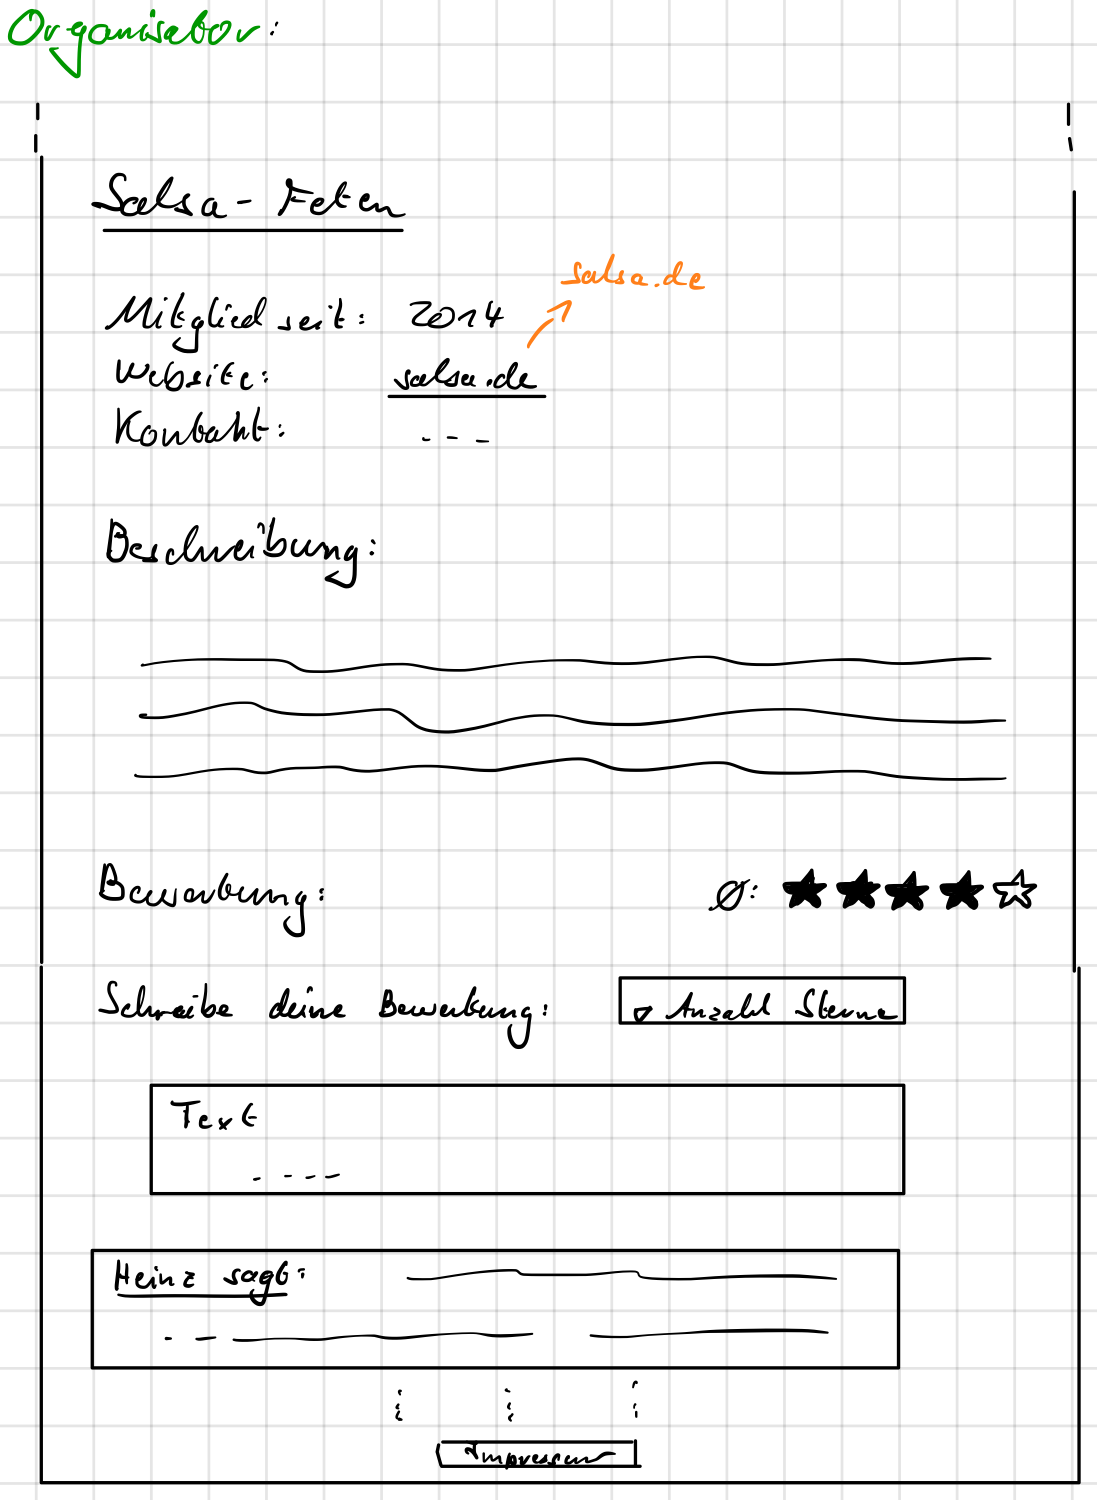 Organisator:
Salsa-Feten
salsa.de
Mitglied seit: 2014
Website: salsa.de
Kontakt: ---
Beschreibung:
Bewertung: Ø: ★★★★☆
Schreibe deine Bewertung: ▽ Anzahl Sterne
Text
----
Heinz sagt:
Impressum